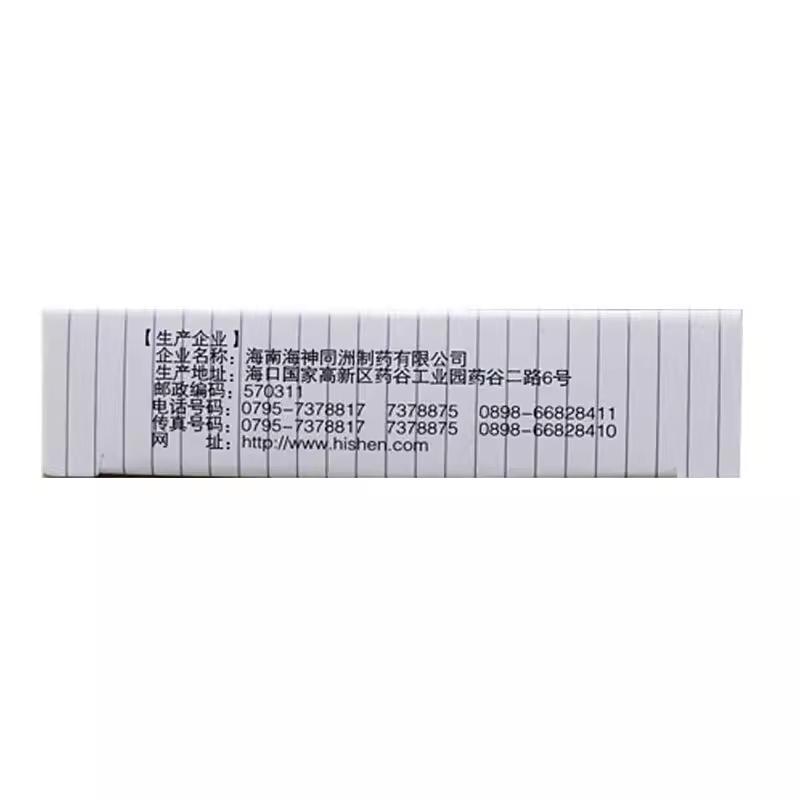 【生产企业】
企业名称：海南海神同洲制药有限公司
生产地址：海口国家高新区药谷工业园药谷二路6号
邮政编码：570311
电话号码：0795-7378817 7378875 0898-66828411
传真号码：0795-7378817 7378875 0898-66828410
网 址：http://www.hishen.com